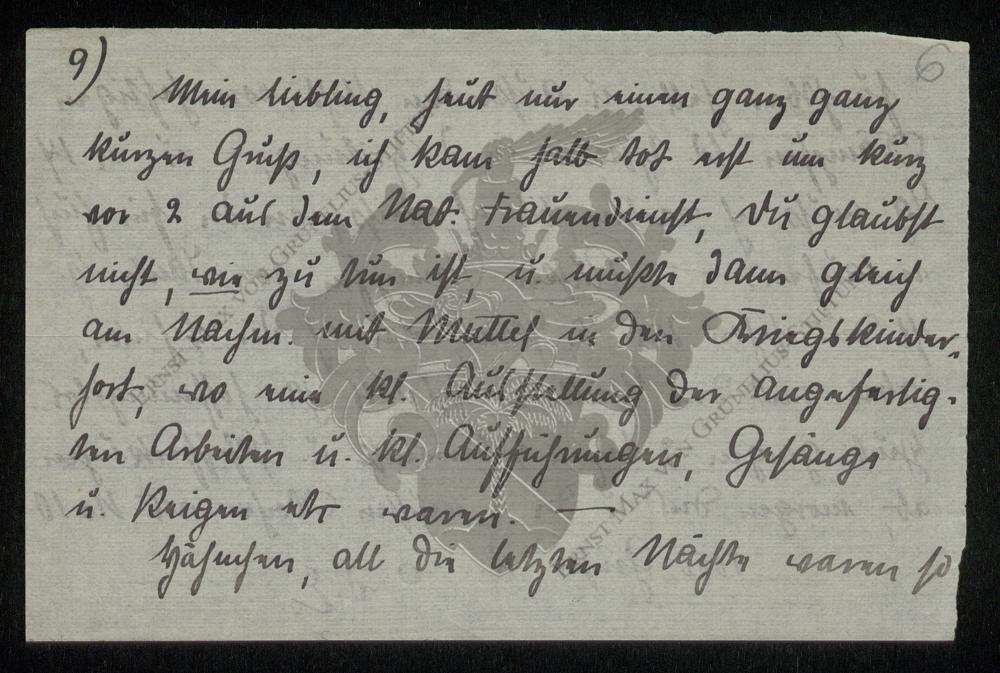 9)
6
Mein Liebling, heut nur einen ganz ganz
kurzen Gruß, ich kam halb tot erst um kurz
vor 2 aus dem Nat. Frauendienst, Du glaubst
nicht, wie zu tun ist, u. mußte dann gleich
am Nachm. mit Muttel in den Kriegskinder-
hort, wo eine kl. Ausstellung der angefertig-
ten Arbeiten u. kl. Aufführungen, Gesänge
u. Reigen etc waren. —
Hähnchen, all die letzten Nächte waren so
ERNST MAX VON GRUNELIUS-STIFTUNG